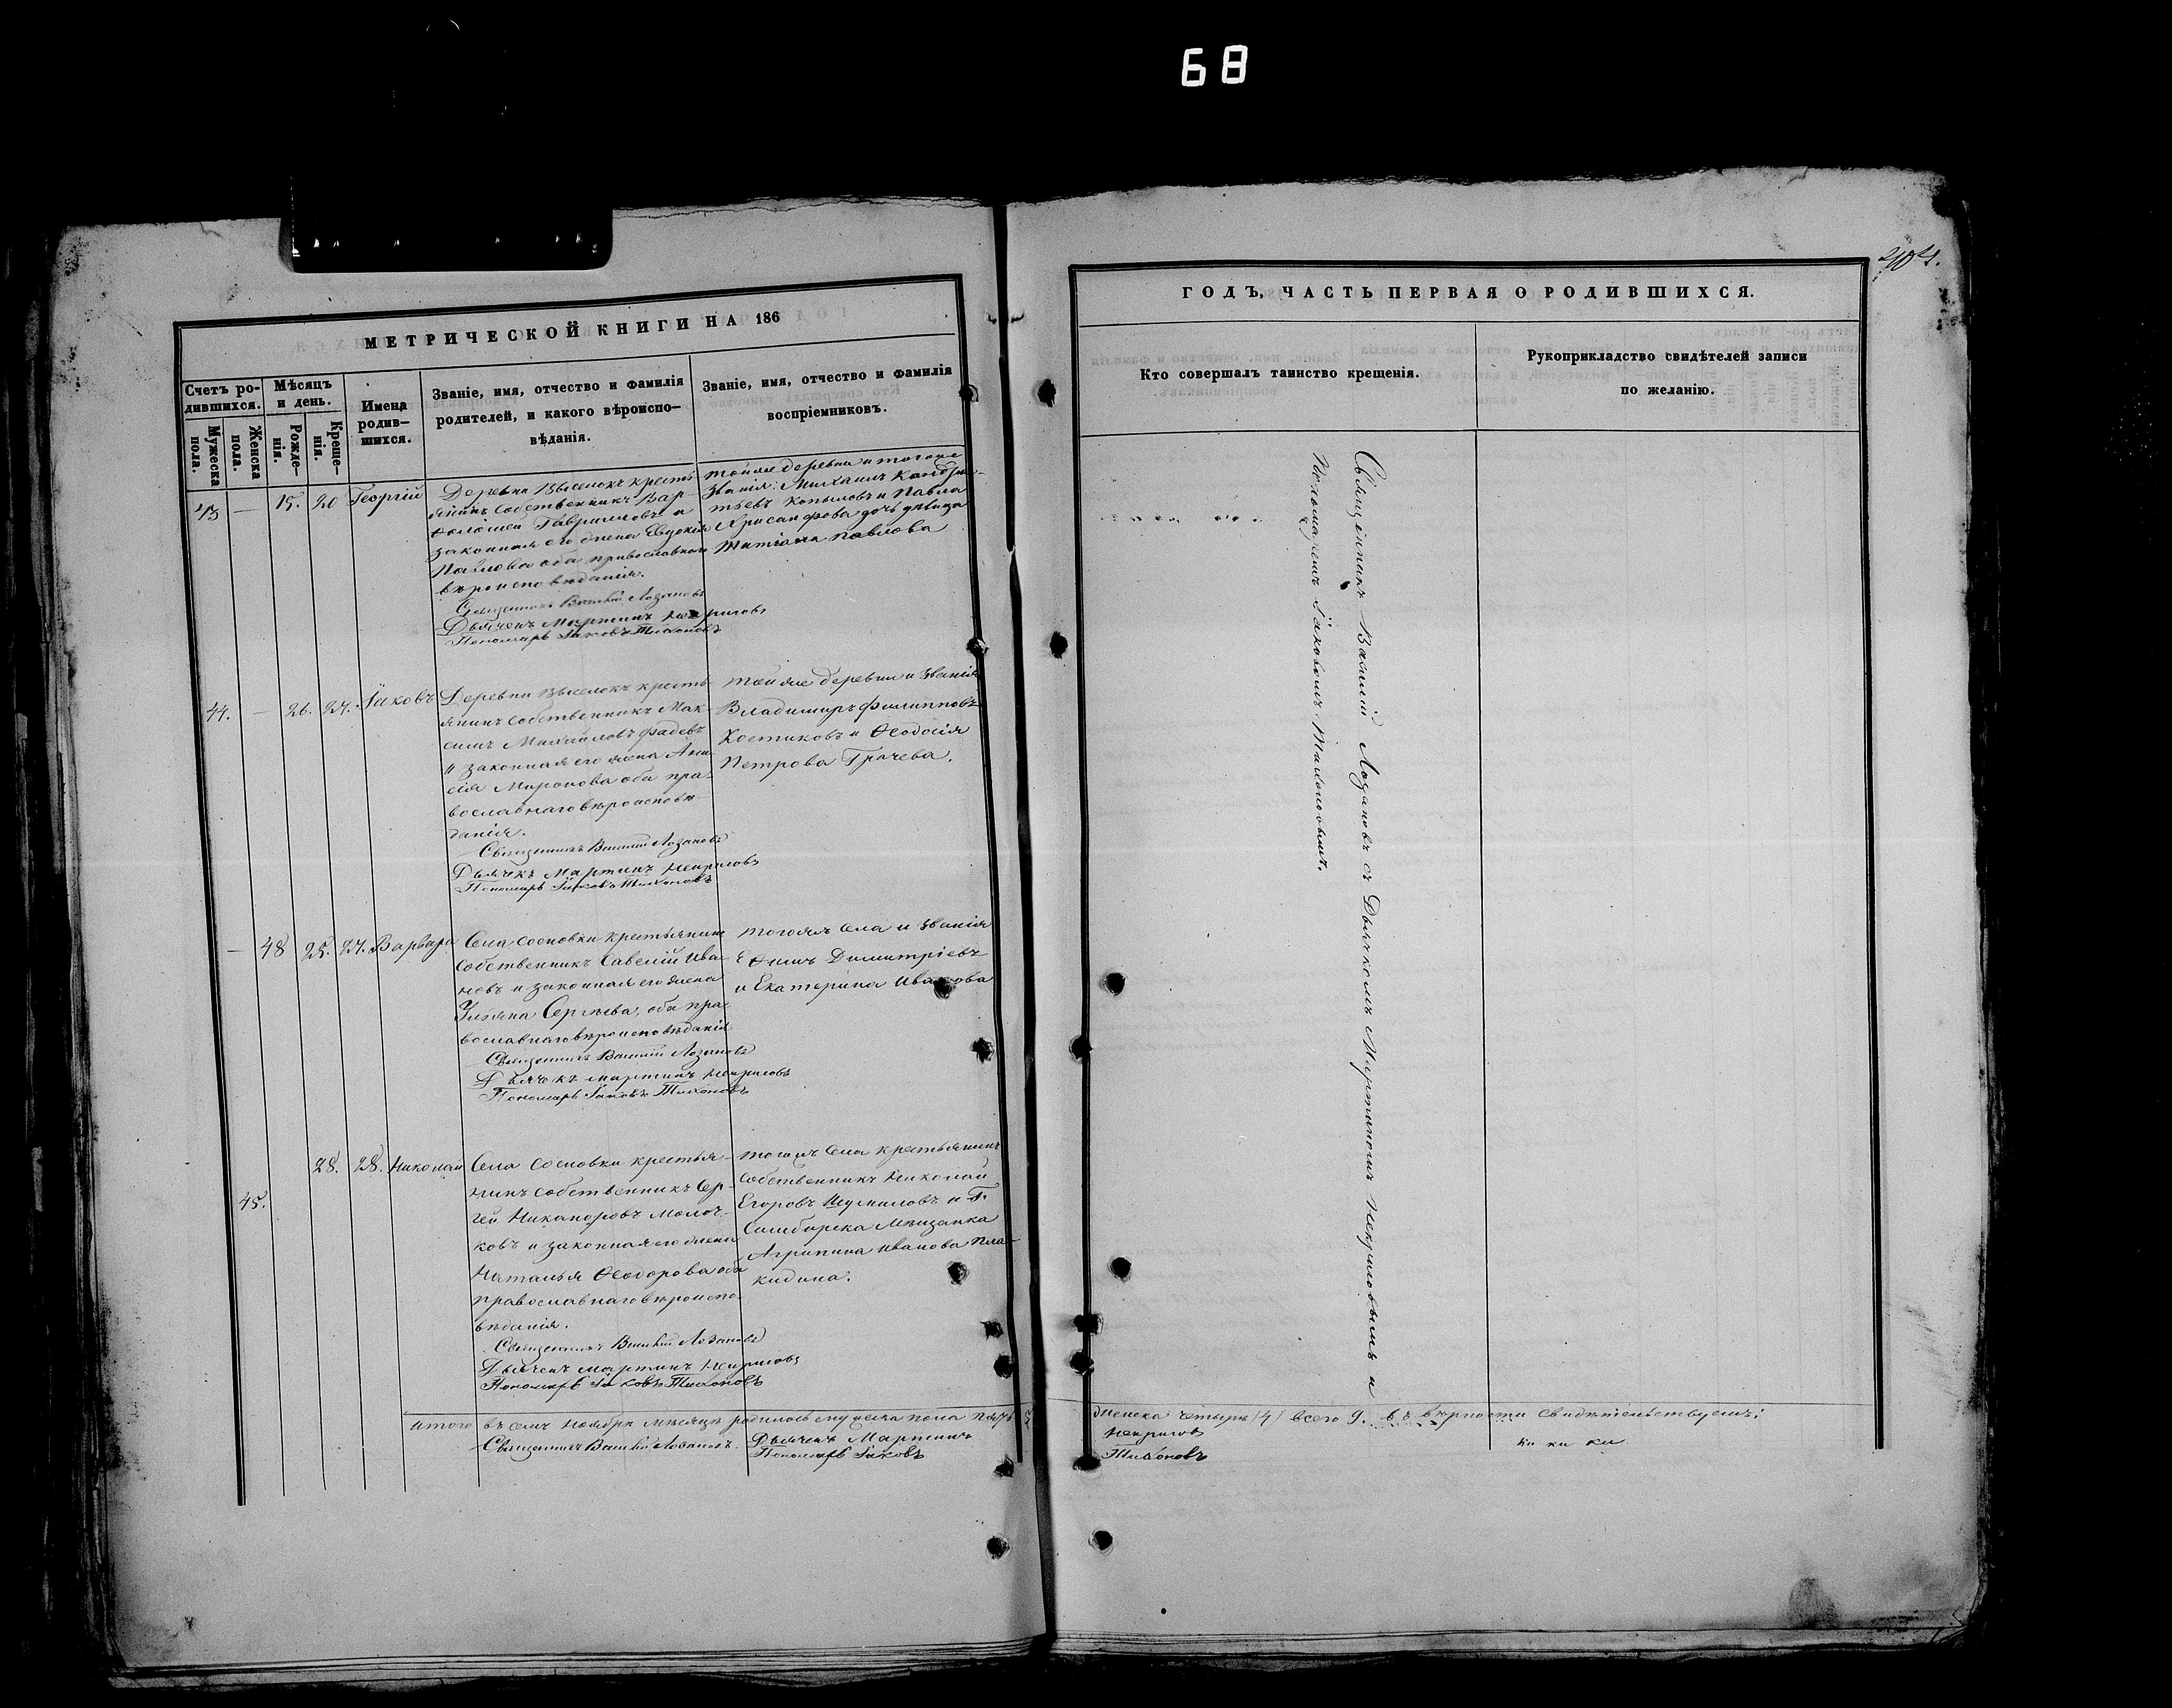 68
404.
МЕТРИЧЕСКОЙ КНИГИ НА 186
Счетъ ро-
дившихся.
Мужеска
пола.
Женска
пола.
Мѣсяцъ
и день.
Рожде-
нія.
Креще-
нія.
Имена
родив-
шихся.
Званіе, имя, отчество и фамилія
родителей, и какого вѣроиспо-
вѣданія.
Званіе, имя, отчество и фамилія
воспріемниковъ.
43 — 15. 20 Георгій
Деревни Выселокъ кресть
янинъ собственникъ Вар-
ѳоломей Гавриловъ и
законная его жена Евдокія
Павлова оба православнаго
вѣроисповѣданія.
Священникъ Василій Лозановъ
Дьячекъ Мартинъ Некриловъ
Пономарь Іаковъ Тихоновъ
тойже деревни и тогоже
званія: Михаилъ Кондра-
тьевъ Копыловъ и Павла
Хрисанфова дочь дѣвица
Татіана Павлова
44. — 26. 27. Іаковъ
Деревни Выселокъ кресть
янинъ собственникъ Мак-
симъ Михайловъ Фадевъ
и законная его жена Ани-
сія Миронова оба пра-
вославнаго вѣроисповѣ-
данія.
Священникъ Василій Лозановъ
Дьячекъ Мартинъ Некриловъ
Пономарь Іаковъ Тихоновъ
тойже деревни и званія
Владимиръ Филипповъ
Костиковъ и Ѳеодосія
Петрова Грачева.
— 48 25. 27. Варвара
Села Сосновки крестьянинъ
собственникъ Савелій Ива-
новъ и законная его жена
Ульяна Сергѣева, оба пра-
вославнаго вѣроисповѣданія
Священникъ Василій Лозановъ
Дьячекъ Мартинъ Некриловъ
Пономарь Іаковъ Тихоновъ
тогожъ села и званія
Ефимъ Димитріевъ
и Екатерина Иванова
45. 28. 28. Николай
Села Сосновки крестья-
нинъ собственникъ Сер-
гей Никаноровъ Молоч-
ковъ и законная его жена
Наталья Ѳеодорова оба
православнаго вѣроиспо-
вѣданія.
Священникъ Василій Лозановъ
Дьячекъ Мартинъ Некриловъ
Пономарь Іаковъ Тихоновъ
тогожъ села крестьянинъ
собственникъ Николай
Егоровъ Шумиловъ и Г.
Симбирска мѣщанка
Агрипина Иванова Пла-
кидина.
итого въ семъ ноябрѣ мѣсяцѣ родилось мужеска пола пять
Священникъ Василій Лозановъ. Дьячекъ Мартинъ
Пономарь Іаковъ
ГОДЪ, ЧАСТЬ ПЕРВАЯ О РОДИВШИХСЯ.
Кто совершалъ таинство крещенія.
Рукоприкладство свидѣтелей записи
по желанію.
Священникъ Василій Лозановъ съ Дьячкомъ Мартиномъ Некриловымъ и
Пономаремъ Іаковомъ Тихоновымъ.
женска четыре /4/ всего 9. въ вѣрности свидѣтельствуемъ:
Некриловъ
Тихоновъ